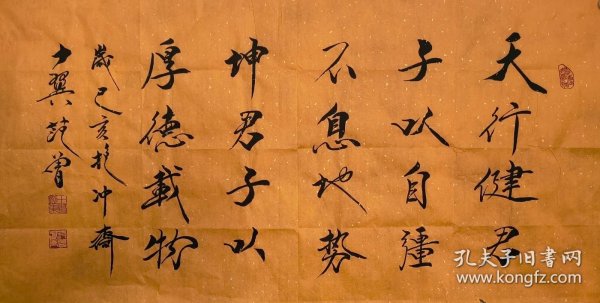 天行健君
子以自疆
不息地势
坤君子以
厚德载物
岁己亥抱冲斋
十翼范曾
孔夫子旧书网
www.kongfz.com